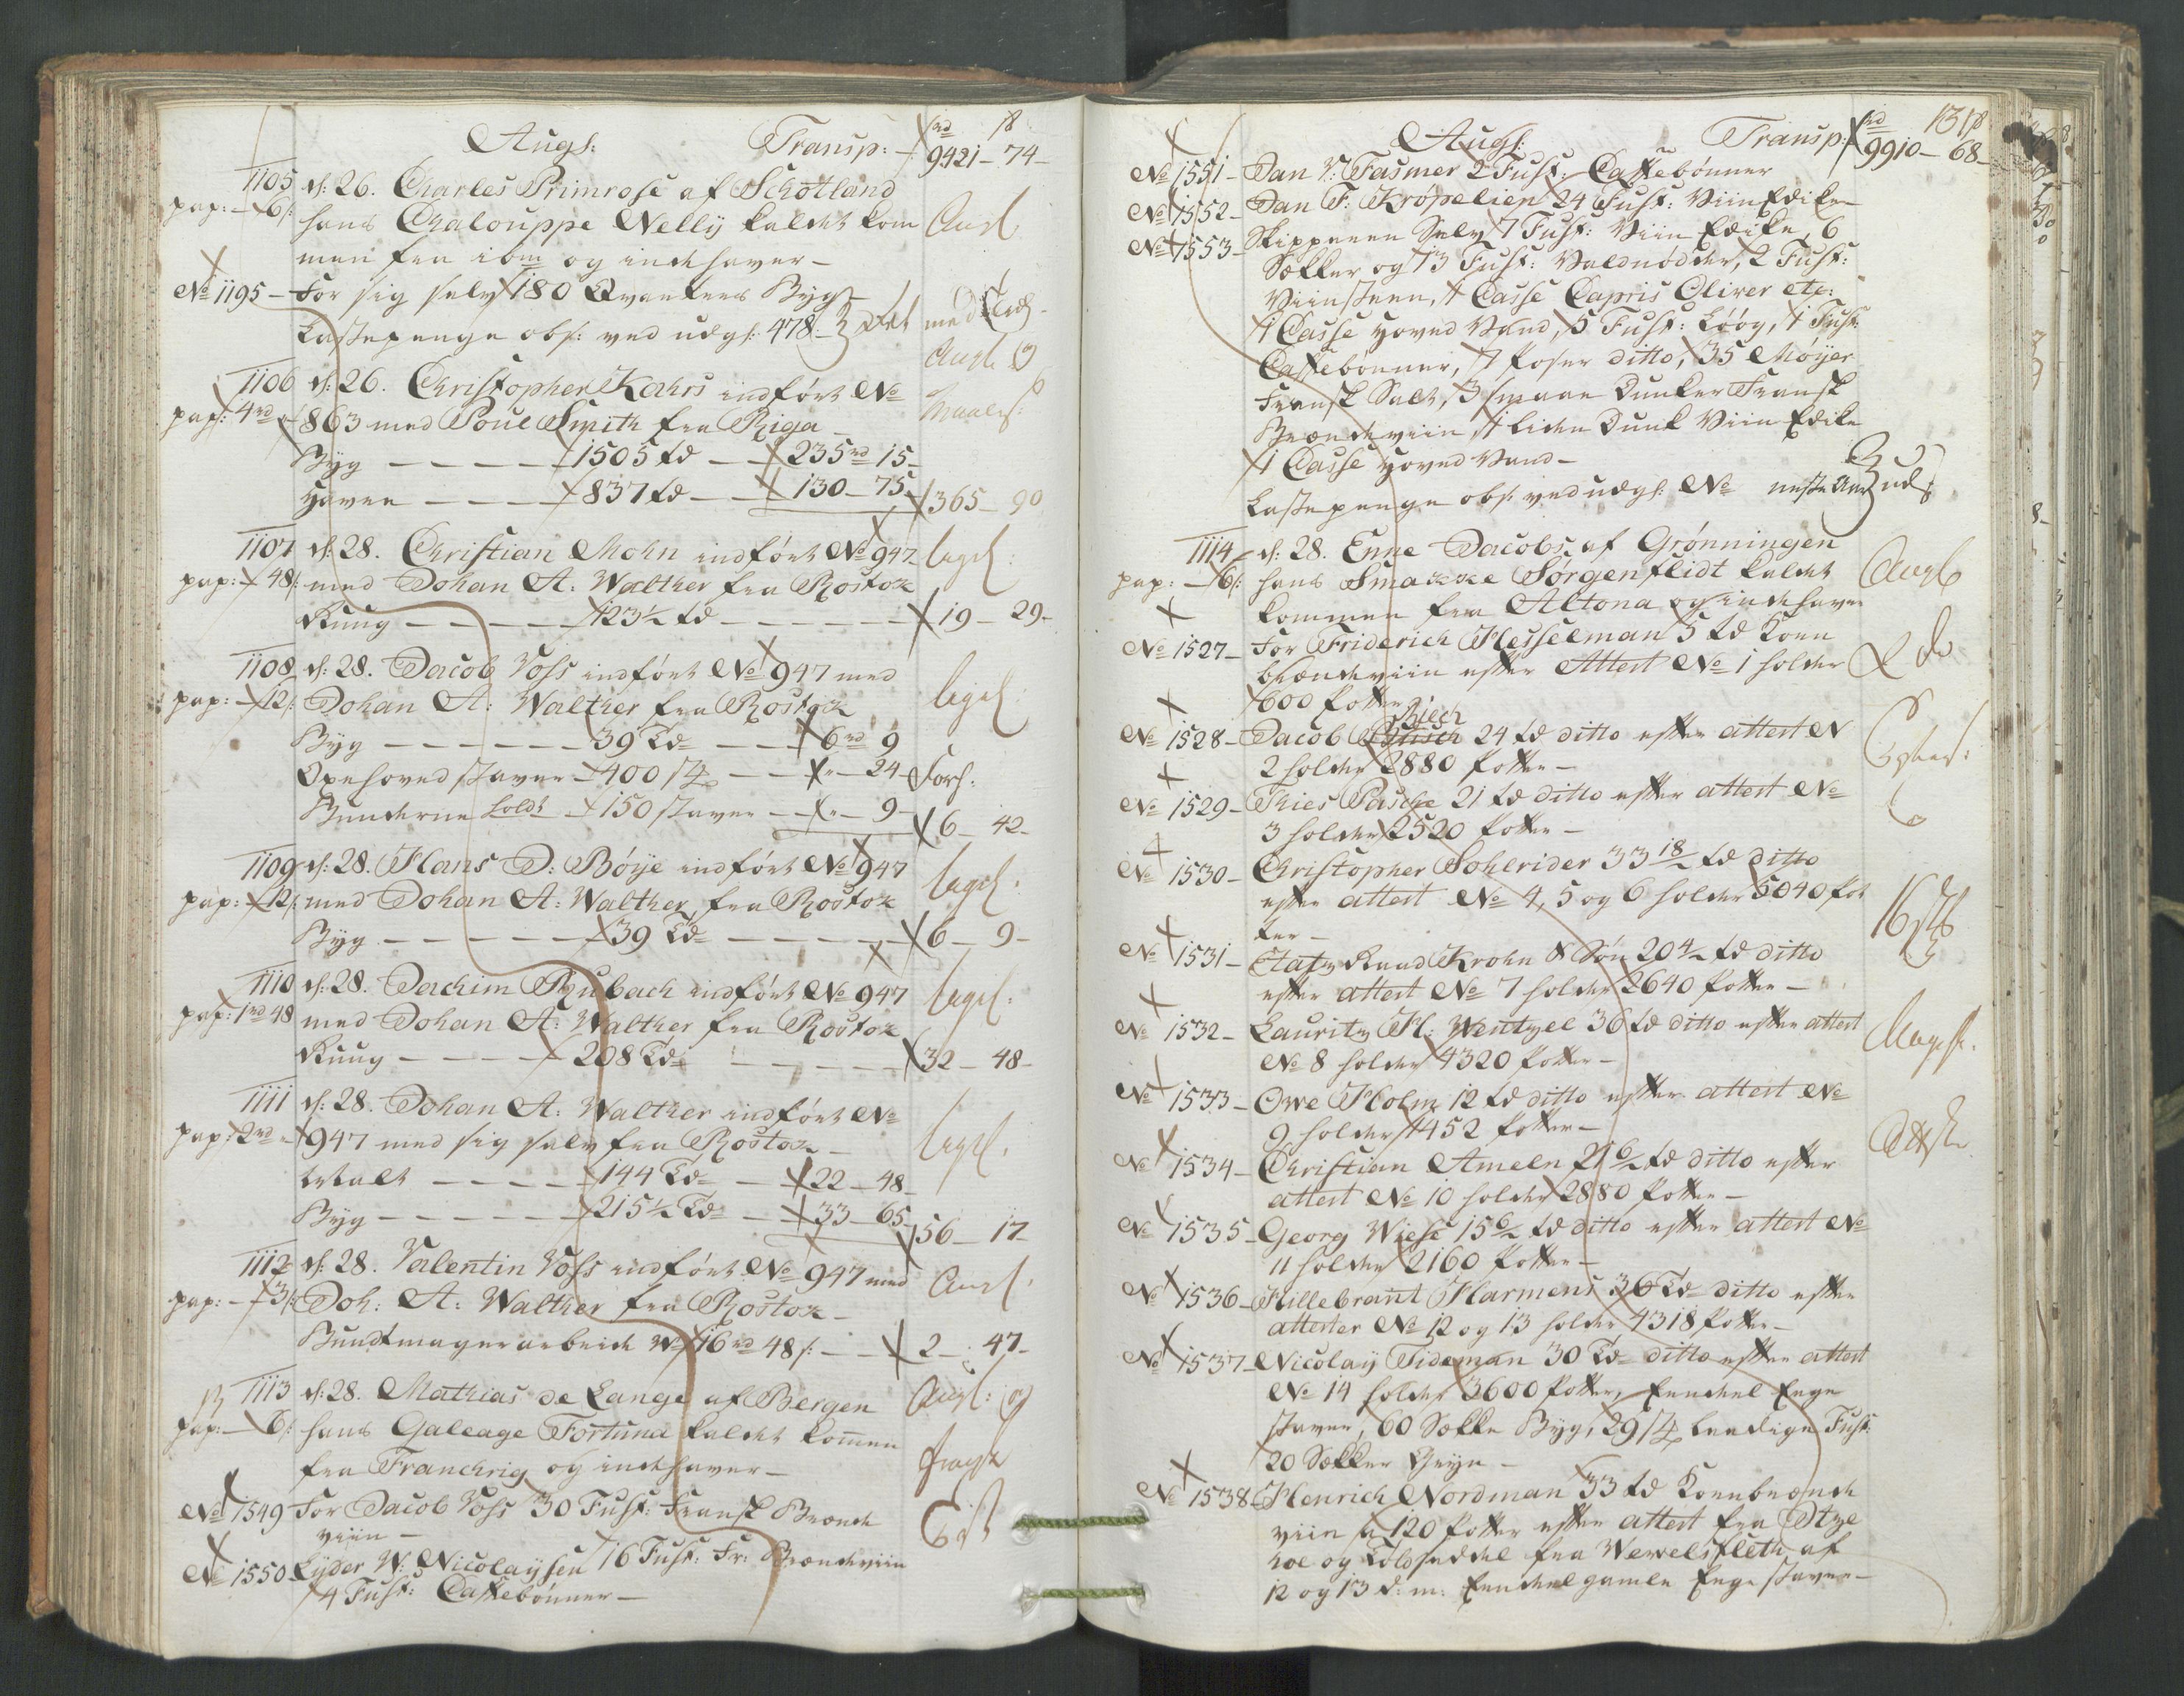 Augs: Transp: rd 9421 - 74 -
1105 d: 26. Charles Primrose af Schotland
pap: - 6/: hans Chalouppe Nelly kaldet kom
men fra ibm og indehaver -
No 1195 - For sig selv 180 Qvarters Byg -
Lastepenge obs: ved udgl: 478 -
1106 d: 26. Christopher Kahrs indført No
pap: 4 rd 863 med Poul Smith fra Riga
Byg - 1505 td - 235 rd 15 -
Haver - 837 td - 130 - 75 - 365 - 90
1107 d: 28. Christian Mohn indført No 947
pap: - 48/: med Johan A: Walther fra Rostok
Ruug - 123 ½ td - 19 - 29 -
1108 d: 28. Jacob Voss indført No 947 med
pap: - 12/: Johan A: Walther fra Rostok
Byg - 39 Td - 6 rd 9
Oxehoved staver - 400 st - " - 24 -
Bunderne holdt - 150 staver - " - 9 - 6 - 42 -
1109 d: 28. Hans D: Bøye indført No 947
pap: - 12/: med Johan A: Walther fra Rostok
Byg - 39 Td - 6 - 9 -
1110 d: 28. Jochim Rubach indført No 947
pap: 1 rd 48 med Johan A: Walther fra Rostok
Ruug - 208 Td - 32 - 48 -
1111 d: 28. Johan A: Walther indført No
pap: 2 rd 947 med sig selv fra Rostok -
- 144 Td - 22 - 48
Byg - 215 ½ Td - 33 - 65 56 - 17
1112 d: 28. Valentin Voss indført No 947 med
pap: - 3/: Joh: A: Walther fra Rostok -
Bundtmagerarbeide W 16 rd 48/: - 2 - 47 -
1113 d: 28. Mathias de Lange af Bergen
pap: - 6/: hans Galeage Fortuna kaldet kommen
fra Franckrig og indehaver -
No 1549 For Jacob Voss 30 Fust: Fransk Brænde
viin -
No 1550 Lyder W: Nicolaysen 16 Fust: Fr: Brændeviin
4 Fust: Caffebønner -
Augs: Transp: rd 9910 - 68 -
No 1551 - Dan V: Fasmer 2 Fust: Caffebønner
No 1552 - Dan F: Kropelien 24 Fust: Viin Edike -
No 1553 - Skipperen Selv 7 Fust: Viin Edike, 6
Sækker og 13 Fust: Valdnødder, 2 Fust:
Viinsteen, 1 Casse Capris Oliver etc:
1 Casse Hoved Vand, 5 Fust: Løøg, 1 Fust:
Caffebønner, 7 Poser ditto, 35 Møyer
Fransk Salt, 3 smaae Dunker Fransk
Brændeviin, 1 liden Dunk Viin Edike
1 Casse Hoved Vand -
Lastepenge obs: ved udgl: No neste Aar
1114 - d: 28. Enne Jacobs af Grønningen
pap: - 6/: hans Smakke Sorgenflidt kaldet
kommen fra Altona og indehaver
No 1527 - For Friderich Hesselman 5 td Korn
brændeviin efter Attest No 1 holder
600 Potter
No 1528 - Jacob Riech 24 td ditto efter attest N
2 holder 2880 Potter -
No 1529 - Thies Pasche 21 td ditto efter attest No
3 holder 2520 Potter -
No 1530 - Christopher Sohlrider 33 18/ td ditto
efter attest No 4, 5 og 6 holder 5040 Pot
ter -
No 1531 - Etatz Raad Krohn & Søn 20 4/ td ditto
efter attest No 7 holder 2640 Potter -
No 1532 - Lauritz H: Wentzel 36 td ditto efter attest
No 8 holder 4320 Potter -
No 1533 - Owe Holm 12 td ditto efter attest No
9 holder 1452 Potter -
No 1534 - Christian Ameln 21 6/ td ditto efter
attest No 10 holder 2880 Potter -
No 1535 - Georg Wiese 15 6/ td ditto efter attest No
11 holder 2160 Potter -
No 1536 - Hillebrant Harmens 36 Td ditto efter
attester No 12 og 13 holder 4318 Potter -
No 1537 - Nicolay Tideman 30 Td ditto efter attest
No 14 holder 3600 Potter, Eendeel Ege
staver, 60 Sække Byg, 29 st leedige Fust:
20 Sækker Gryn -
No 1538 - Henrich Nordman 33 td Kornbrænde
viin a 120 Potter efter attest fra Itze
hoe og Toldseddel fra Wewelsfleth af
12 og 13 d: m: Eendeel gamle Ege staver -